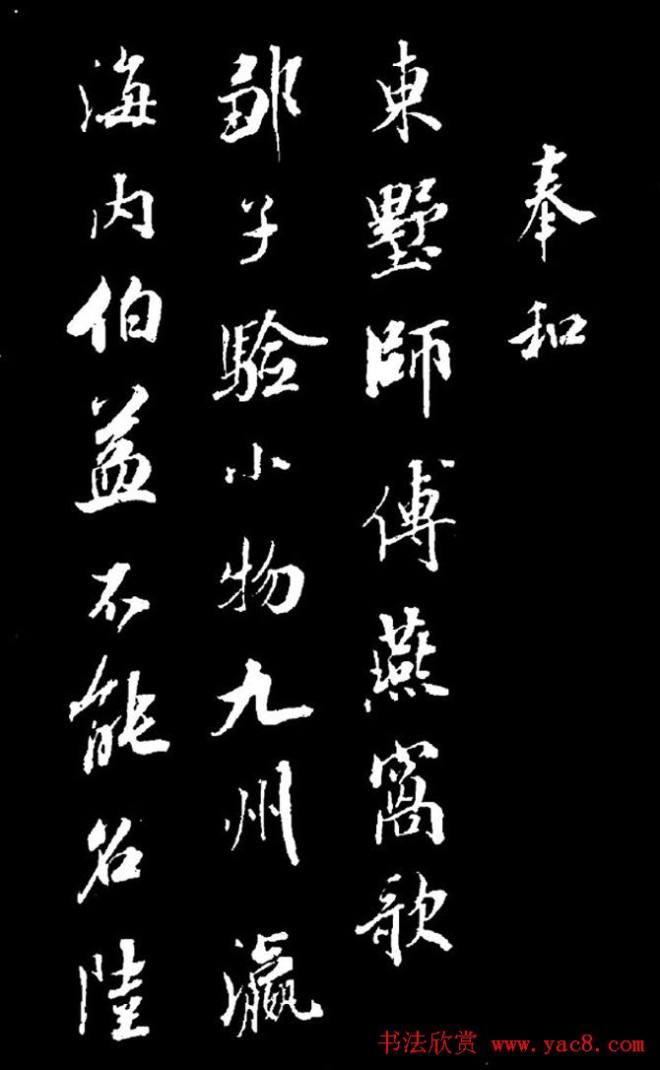 奉和
東墅師傅燕窩歌
邹子驗小物九州瀛
海内伯益不能名陸
书法欣赏 www.yac8.com